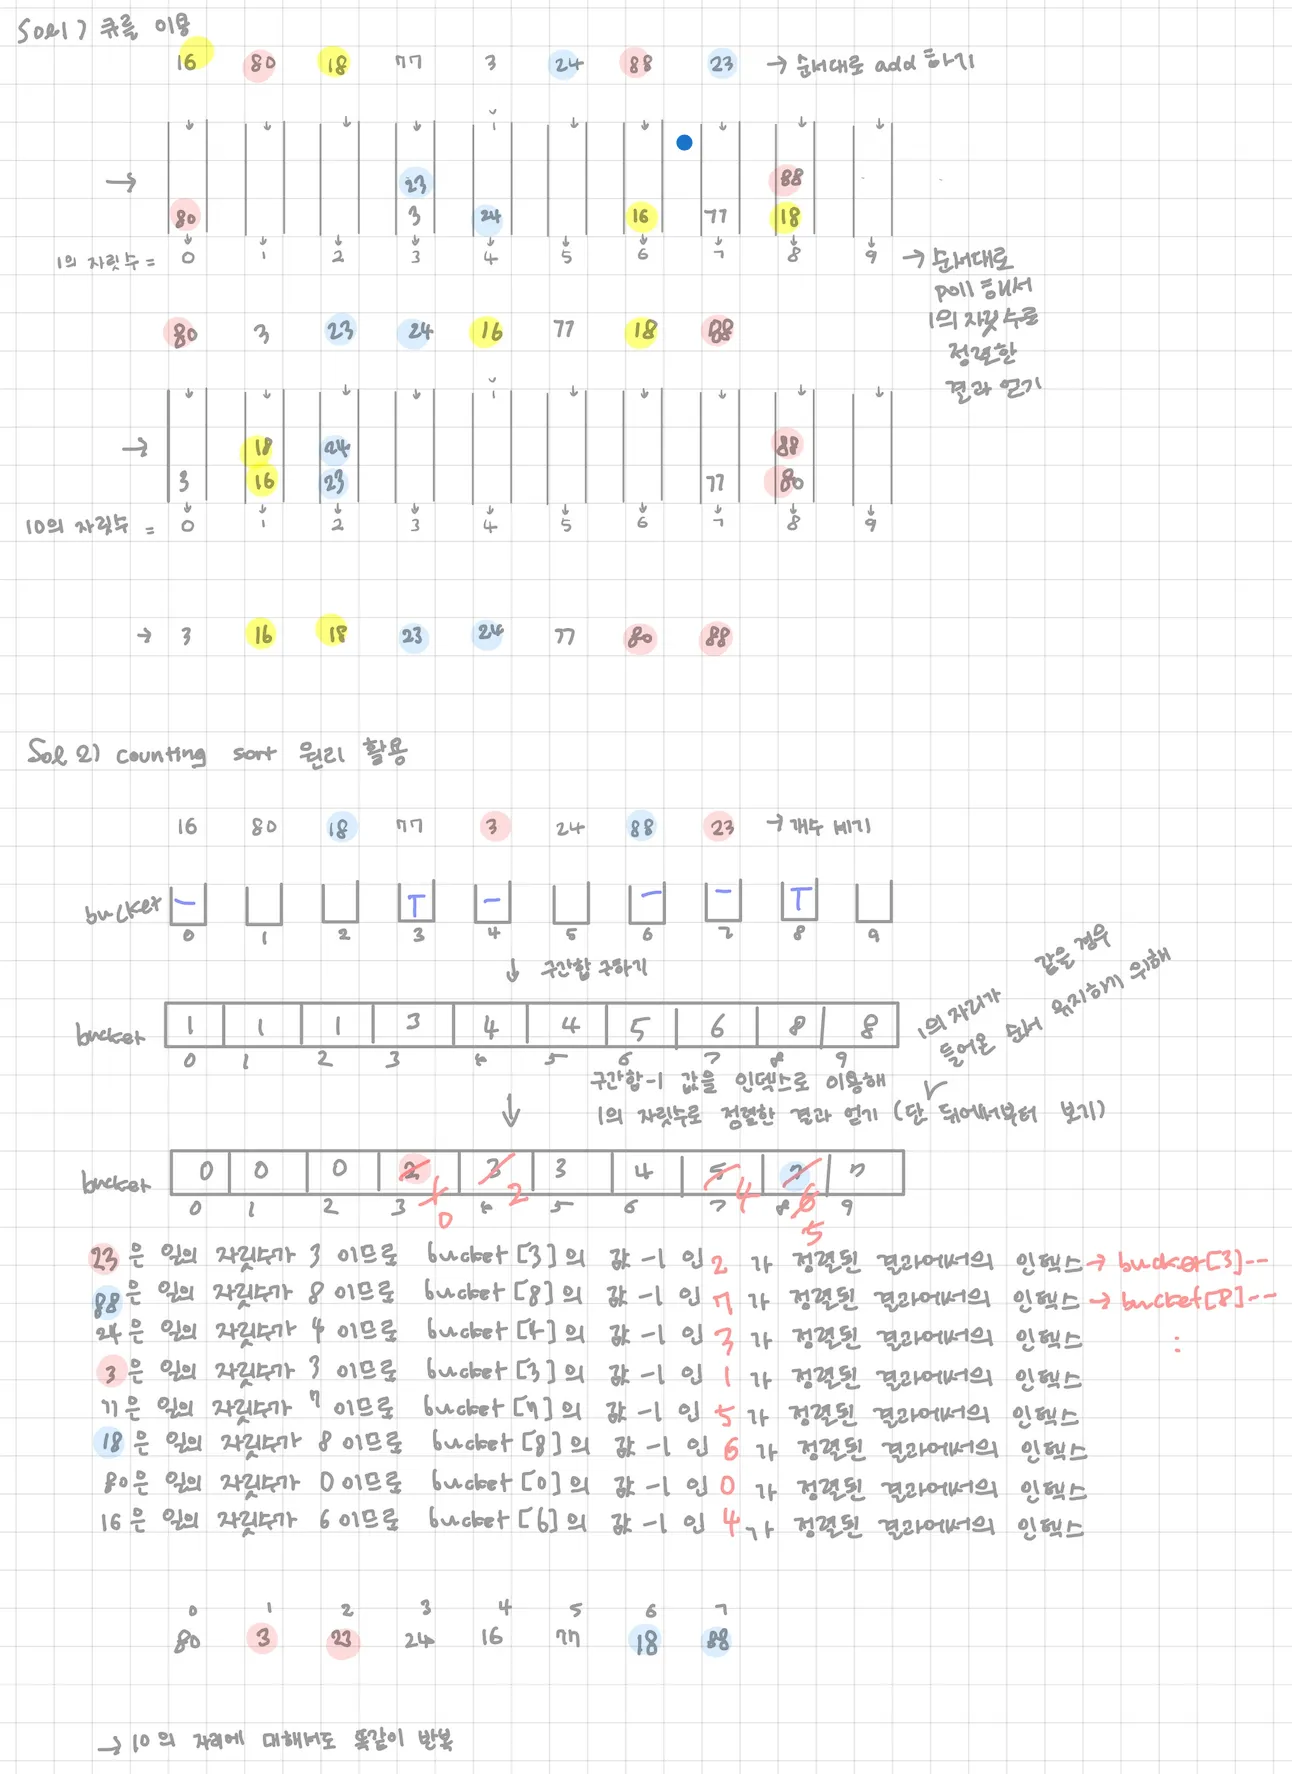 Sol 1) 큐를 이용
16 80 18 77 3 24 88 23 → 순서대로 add 하기
→ 23 88
80 3 24 16 77 18
1의 자릿수 = 0 1 2 3 4 5 6 7 8 9
→ 순서대로
poll 해서
1의 자릿수로
정렬한
결과 얻기
80 3 23 24 16 77 18 88
→ 18 24 88
3 16 23 77 80
10의 자릿수 = 0 1 2 3 4 5 6 7 8 9
→ 3 16 18 23 24 77 80 88
Sol 2) counting sort 원리 활용
16 80 18 77 3 24 88 23 → 개수 세기
bucket
0 1 2 3 4 5 6 7 8 9
↓ 구간합 구하기
bucket 1 1 1 3 4 4 5 6 8 8
0 1 2 3 4 5 6 7 8 9
1의 자리가 같은 경우
들어온 순서 유지하기 위해
구간합-1 값을 인덱스로 이용해
↓ 1의 자릿수로 정렬한 결과 얻기 (단 뒤에서부터 보기)
bucket 0 0 0 2 3 3 4 5 7 7
0 1 2 3 4 5 6 7 8 9
1 0 2 4 6 5
23은 일의 자릿수가 3 이므로 bucket[3]의 값 -1 인 2 가 정렬된 결과에서의 인덱스 → bucket[3]--
88은 일의 자릿수가 8 이므로 bucket[8]의 값 -1 인 7 가 정렬된 결과에서의 인덱스 → bucket[8]--
24은 일의 자릿수가 4 이므로 bucket[4]의 값 -1 인 3 가 정렬된 결과에서의 인덱스 :
3은 일의 자릿수가 3 이므로 bucket[3]의 값 -1 인 1 가 정렬된 결과에서의 인덱스
77은 일의 자릿수가 7 이므로 bucket[7]의 값 -1 인 5 가 정렬된 결과에서의 인덱스
18은 일의 자릿수가 8 이므로 bucket[8]의 값 -1 인 6 가 정렬된 결과에서의 인덱스
80은 일의 자릿수가 0 이므로 bucket[0]의 값 -1 인 0 가 정렬된 결과에서의 인덱스
16은 일의 자릿수가 6 이므로 bucket[6]의 값 -1 인 4 가 정렬된 결과에서의 인덱스
0 1 2 3 4 5 6 7
80 3 23 24 16 77 18 88
→ 10의 자리에 대해서도 똑같이 반복